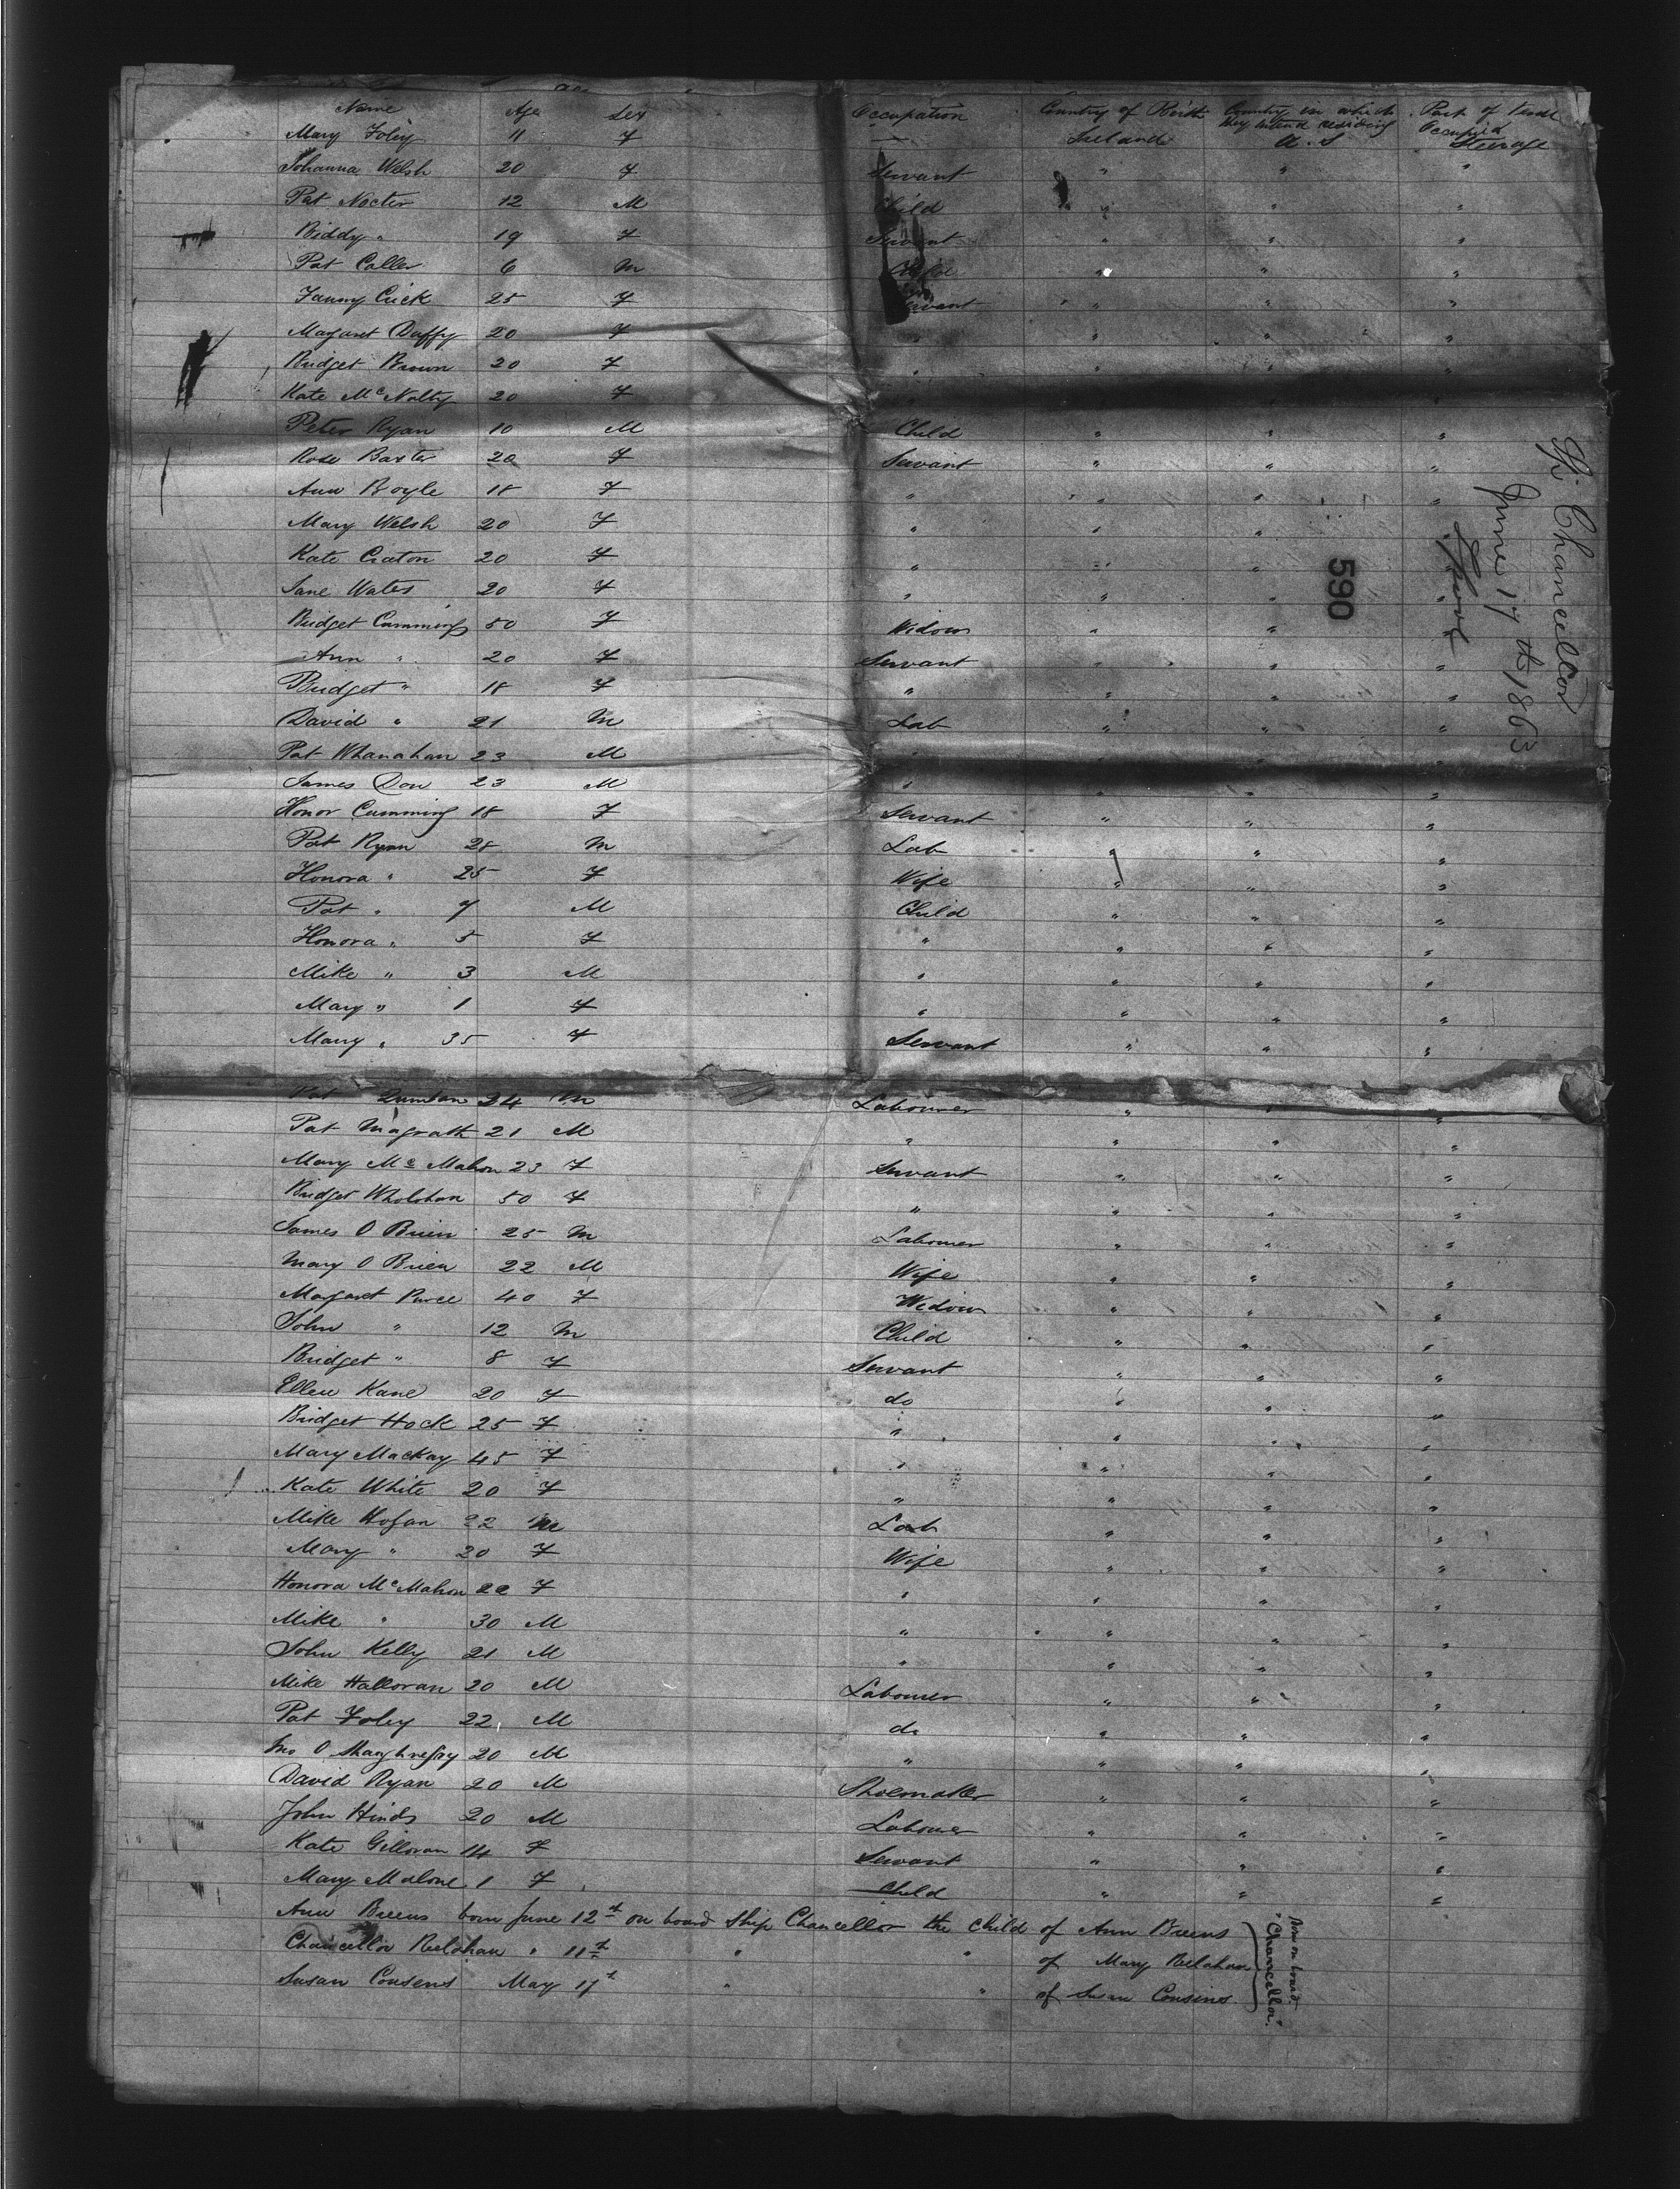 Name Age Sex Occupation Country of Birth Country in which they intend residing Part of Vessel Occupied
Mary Foley 11 F — Ireland U.S Steerage
Johanna Welsh 20 F Servant " " "
Pat Nocter 12 M Child " " "
Biddy " 19 F Servant " " "
Pat Coller 6 M " " "
Fanny Cuck 25 F Servant " " "
Margaret Duffy 20 F " " " "
Bridget Brown 20 F " " " "
Kate McNalty 20 F " " " "
Peter Ryan 10 M Child " " "
Rose Baxter 20 F Servant " " "
Ann Boyle 18 F " " " "
Mary Welsh 20 F " " " "
Kate Craton 20 F " " " "
Jane Wates 20 F " " " "
Bridget Cumming 50 F Widow " " "
Ann " 20 F Servant " " "
Bridget " 18 F " " " "
David " 21 M Lab " " "
Pat Whanahan 23 M " " " "
James Dow 23 M " " " "
Honor Cumming 18 F Servant " " "
Pat Ryan 28 M Lab " " "
Honora " 25 F Wife " " "
Pat " 7 M Child " " "
Honora " 5 F " " " "
Mike " 3 M " " " "
Mary " 1 F " " " "
Mary " 35 F Servant " " "
Pat Quinlan 24 M Labourer " " "
Pat Magrath 21 M " " " "
Mary Mc Mahon 23 F Servant " " "
Bridget Wholohan 50 F " " " "
James O Brien 25 M Labourer " " "
Mary O Brien 22 M Wife " " "
Margaret Purce 40 F Widow " " "
John " 12 M Child " " "
Bridget " 8 F Servant " " "
Ellen Kane 20 F do " " "
Bridget Hock 25 F " " " "
Mary Mackay 45 F " " " "
Kate White 20 F " " " "
Mike Hogan 22 M Lab " " "
Mary " 20 F Wife " " "
Honora McMahon 22 F " " " "
Mike " 30 M " " " "
John Kelly 21 M " " " "
Mike Halloran 20 M Labourer " " "
Pat Foley 22 M do " " "
Jno O Shaughnessy 20 M " " " "
David Ryan 20 M Shoemaker " " "
John Hinds 20 M Labourer " " "
Kate Gilloran 14 F Servant " " "
Mary Malone 1 F Child " " "
Ann Breens born June 12th on board Ship Chancellor the child of Ann Breens
Chancellor Relahan " 11th " " of Mary Relahan
Susan Cousens May 17th " " of Susan Cousins
Born on board "Chancellor"
Sh. Chancellor
June 17th 1863
590